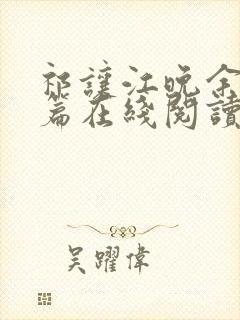 祁讓江晚余
篇在綫閱讀
吴躍偉